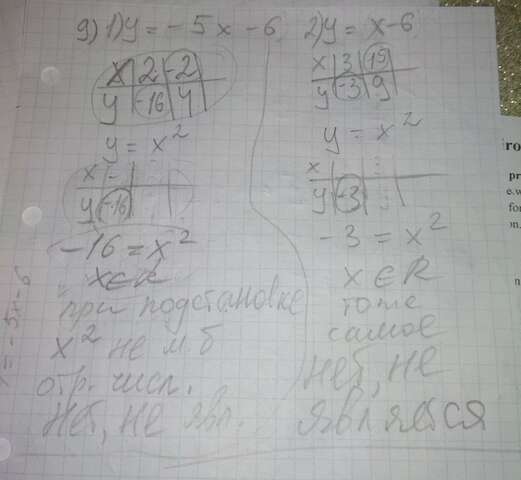 9) 1) y = -5x - 6
x | 2 | -2
y | -16 | 4
y = x²
x | -
y | -16
-16 = x²
x ∈ R
при подстановке
x² не м.б
отр. числ.
нет, не явл.
2) y = x - 6
x | 3 | 15
y | -3 | 9
y = x²
x
y | -3
-3 = x²
x ∈ R
тоже
самое
нет, не
является